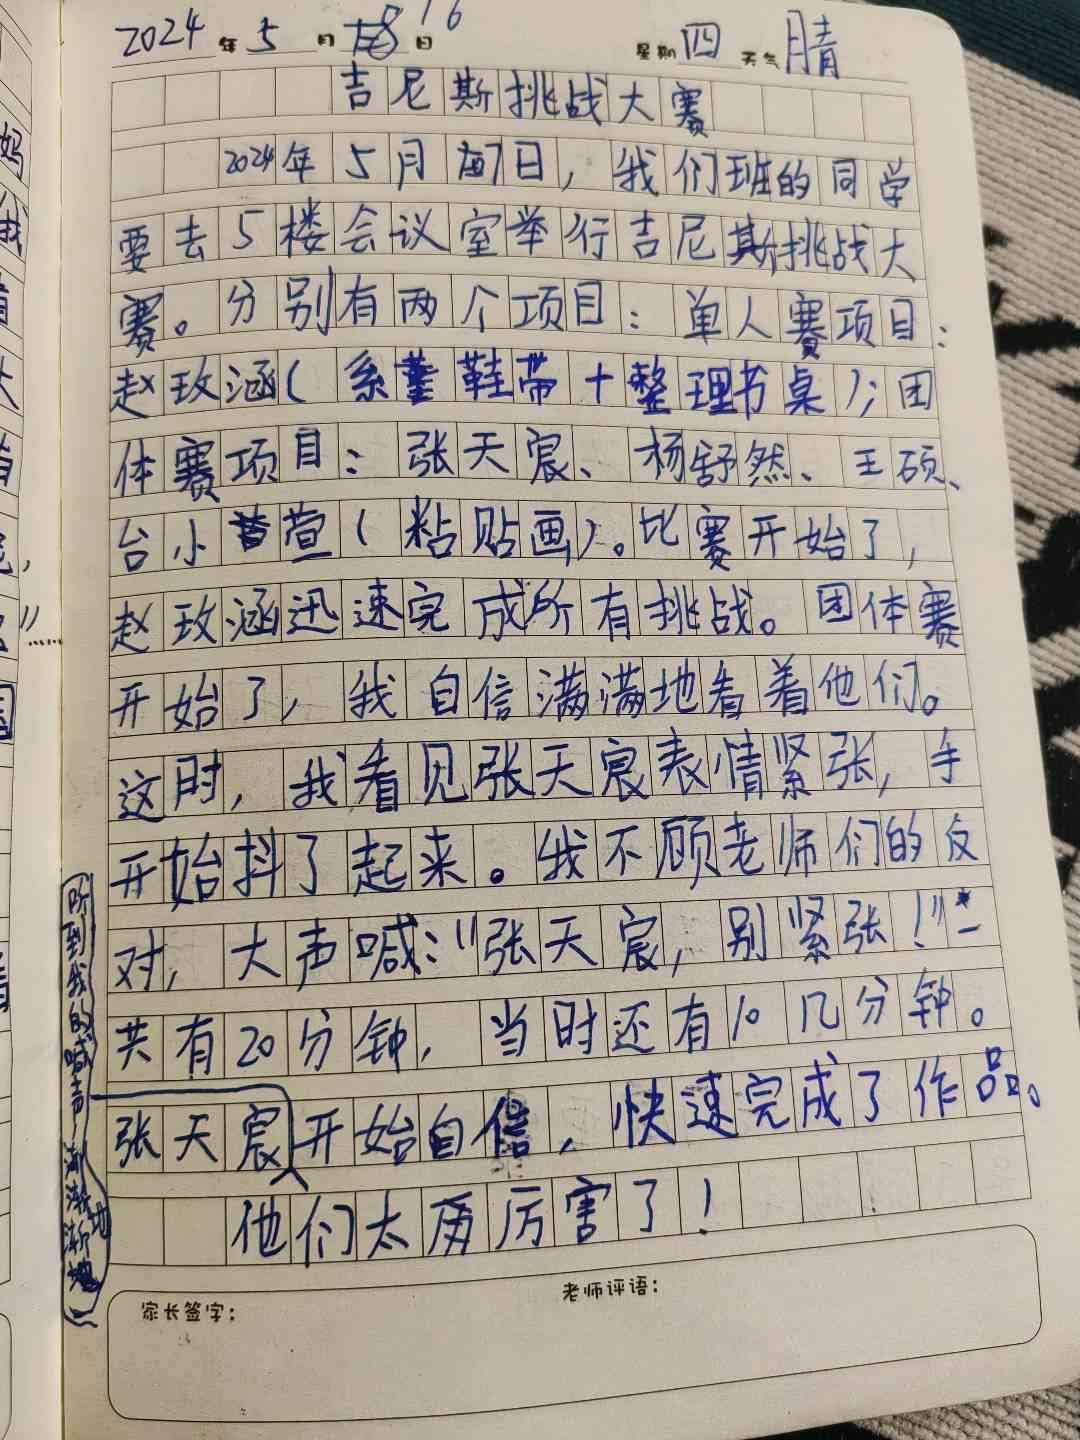 2024年5月16日 星期四 天气晴
吉尼斯挑战大赛
2024年5月7日,我们班的同学
要去5楼会议室举行吉尼斯挑战大
赛。分别有两个项目:单人赛项目:
赵玫涵(系鞋带+整理书桌);团
体赛项目:张天宸、杨舒然、王硕、
台小萱(粘贴画)。比赛开始了,
赵玫涵迅速完成所有挑战。团体赛
开始了,我自信满满地看着他们。
这时,我看见张天宸表情紧张,手
开始抖了起来。我不顾老师们的反
对,大声喊:"张天宸,别紧张!"一
共有20分钟,当时还有10几分钟。
听到我的喊声渐渐地
张天宸开始自信,快速完成了作品。
他们太厉害了!
家长签字: 老师评语: